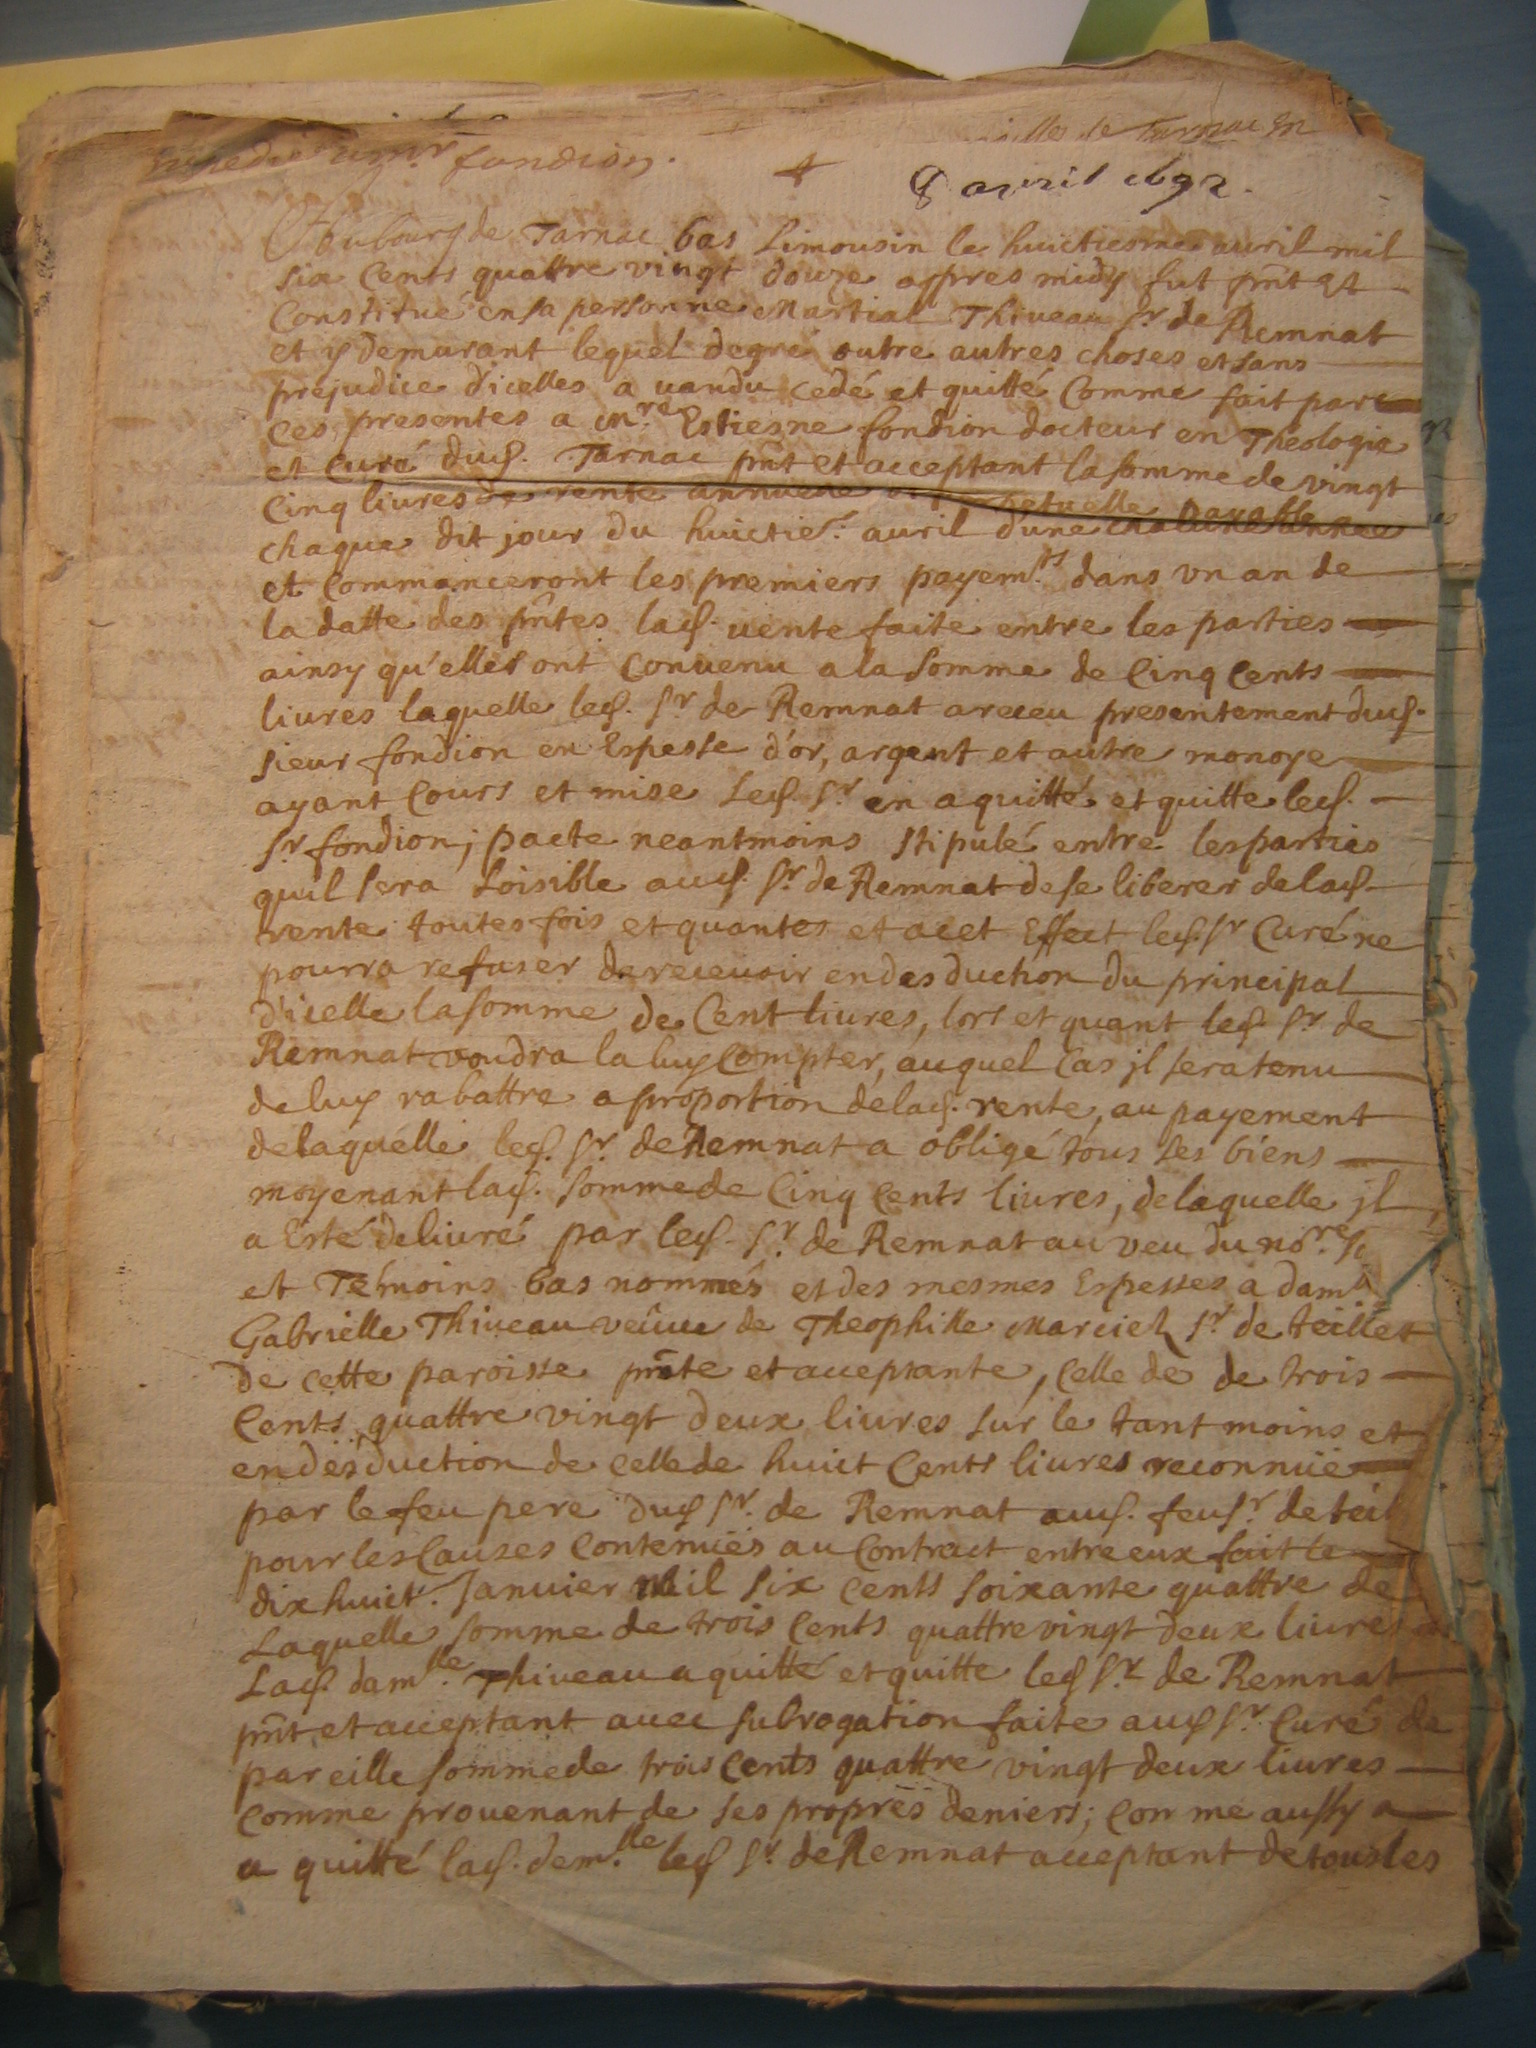 illes de Tarnac en
Expedié a mr. fondion.
8 avril 1692.
Au bourg de Tarnac bas Limousin le huictiesme auril mil
six Cents quattre vingt douze appres midy fut pnt et
Constitué en sa personne Martial Thiueau sr. de Remnat
et y demurant lequel degré outre autres choses et sans
prejudice d'icelles a uandu cedé et quitté Comme fait par
ces presentes a mre. Estiesne fondion docteur en Theologie
et Curé dud. Tarnac pnt et acceptant la somme de vingt
Cinq liures de rente annuelle et perpetuelle payable
chaque dit jour du huictie. auril d'une chacune Annee
et Commanceront les premiers payem.ts dans vn an de
la datte des pntes lad. uente faite entre les parties
ainsy qu'elles ont Conuenu a la somme de Cinq Cents
liures laquelle led. sr. de Remnat a receu presentement dud.
sieur fondion en Espesse d'or, argent et autre monoye
ayant Cours et mise Led. sr. en a quitté et quitte led.
sr. fondion; pacte neantmoins stipulé entre les parties
quil sera Loisible aud. sr. de Remnat de se liberer de lad.
rente toutes fois et quantes et a cet Effect led. sr Curé ne
pourra refuser de receuoir en desduction du principal
d'icelle la somme de Cent liures, lors et quant led. sr. de
Remnat voudra la luy Compter, auquel Cas jl sera tenu
de luy rabattre a proportion de lad. rente, au payement
de laquelle led. sr. de Remnat a obligé tous ses biens
moyenant lad. somme de Cinq Cents liures, de laquelle jl
a Esté deliuré par led. sr. de Remnat au veu du nore. so
et Témoins bas nommés et des mesmes Espesses a dam
Gabrielle Thiueau veüue de Theophille Marciel sr. de teillet
de cette paroisse pnte et acceptante, celle de de trois
Cents quattre vingt deux liures sur le tant moins et
en desduction de celle de huict Cents liures reconnüe
par le feu pere dud sr. de Remnat aud. feu sr. de teil
pour les Causes Contenües au Contract entre eux fait le
dix huict. Januier Mil six Cents soixante quattre de
Laquelle somme de trois Cents quattre vingt deux liures
Lad. damlle. Thiueau a quitté et quitte led sr. de Remnat
pnt et acceptant auec subrogation faite aud sr. Curé de
pareille somme de trois Cents quattre vingt deux liures
Comme prouenant de ses propres deniers; Comme aussy a
a quitté lad. demlle. led sr. de Remnat acceptant de tous les